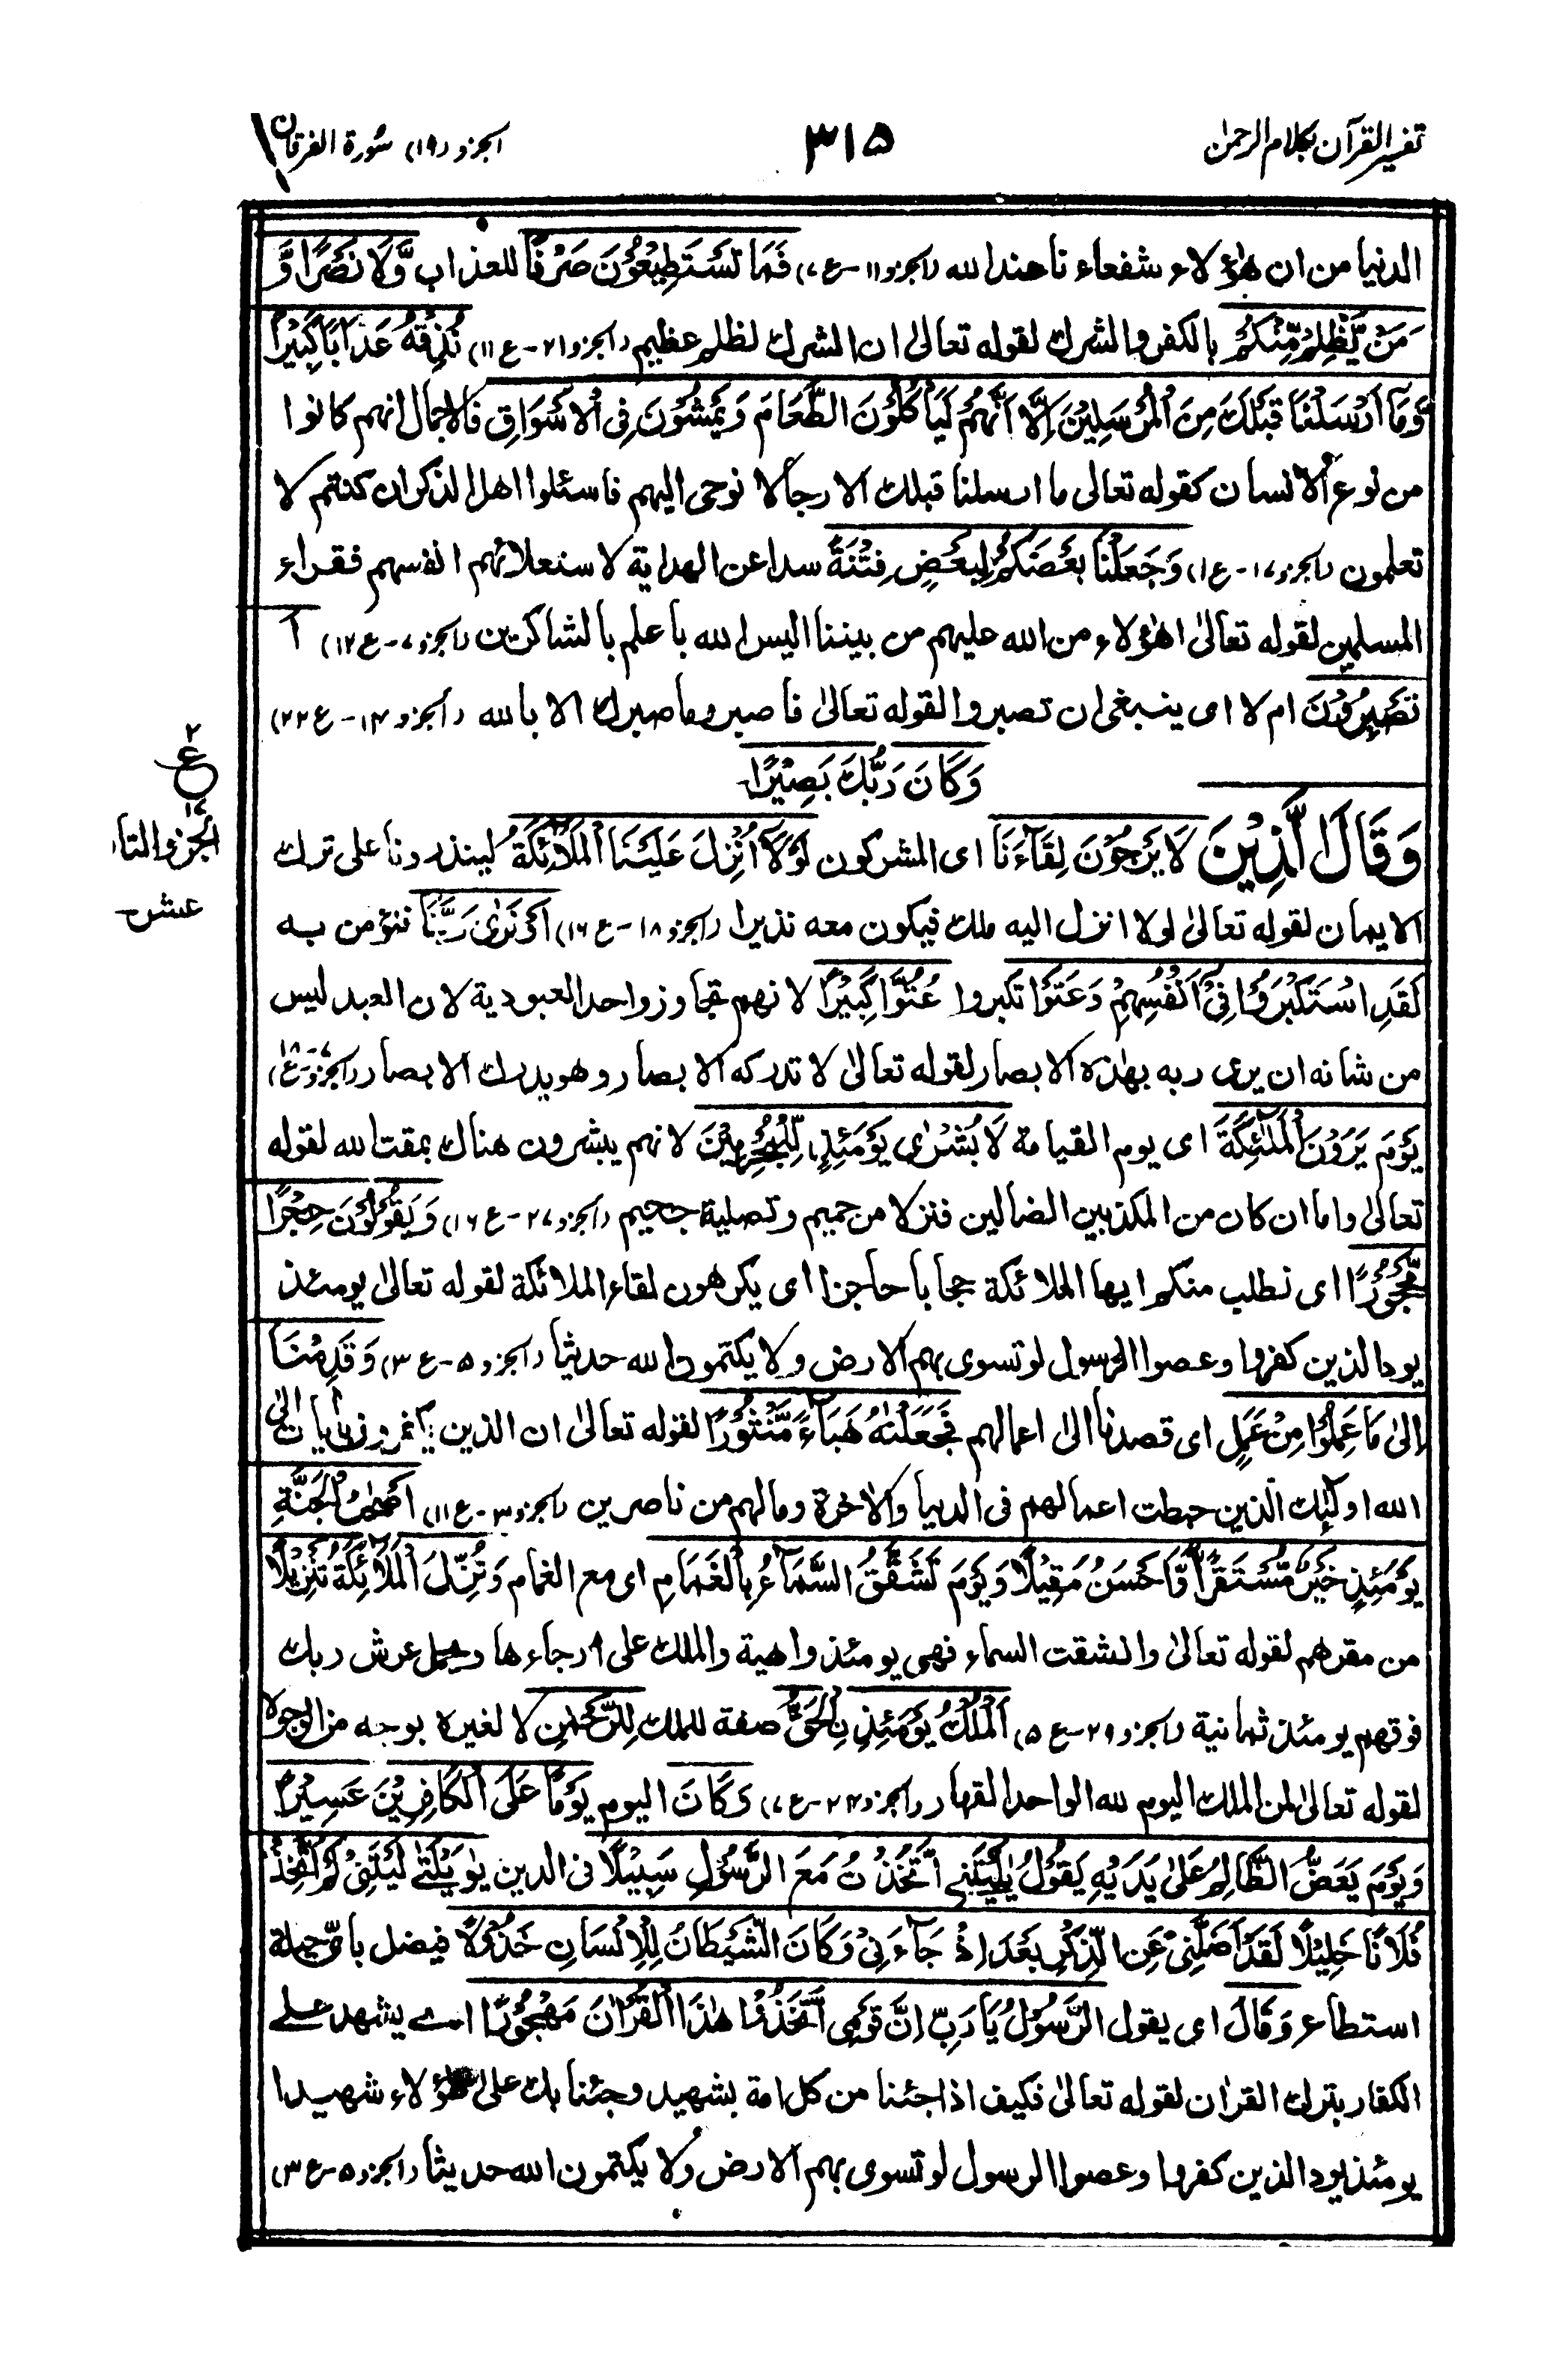 تفسير القرآن بكلام الرحمن ٣١٥ الجزو (١٩) سُورة الفرقان
الدنيا من ان هٰؤلاء شفعاء نا عند الله (الجزو ١١ - ع ٧) فَمَا تَسْتَطِيْعُوْنَ صَرْفًا للعذاب وَّلَا نَصْرًا وَّ
مَنْ يَّظْلِمْ مِّنْكُمْ بالكفر والشرك لقوله تعالىٰ ان الشرك لظلم عظيم (الجزو ٢١ - ع ١١) نُذِقْهُ عَذَابًا كَبِيْرًا
وَمَآ اَرْسَلْنَا قَبْلَكَ مِنَ الْمُرْسَلِيْنَ اِلَّآ اَنَّهُمْ لَيَاْكُلُوْنَ الطَّعَامَ وَيَمْشُوْنَ فِى الْاَسْوَاقِ فالاجمال انهم كانوا
من نوع الانسان كقوله تعالى ما ارسلنا قبلك الا رجالا نوحى اليهم فاسئلوا اهل الذكر ان كنتم لا
تعلمون (الجزو ١٧ - ع ١) وَجَعَلْنَا بَعْضَكُمْ لِبَعْضٍ فِتْنَةً سدا عن الهداية لاستعلائهم انفسهم فقراء
المسلمين لقوله تعالىٰ اهٰؤلاء من الله عليهم من بيننا اليس الله باعلم بالشاكرين (الجزو ٧ - ع ١٢) اَ
تَصْبِرُوْنَ ام لا اى ينبغى ان تصبروا لقوله تعالىٰ فاصبر وما صبرك الا بالله (الجزو ١٤ - ع ٢٢)
وَكَانَ رَبُّكَ بَصِيْرًا
٢
ع
١٧
الجزو التاسع
عشر
وَقَالَ الَّذِيْنَ لَا يَرْجُوْنَ لِقَآءَنَا اى المشركون لَوْلَآ اُنْزِلَ عَلَيْنَا الْمَلَآئِكَةُ لينذرونا على ترك
الايمان لقوله تعالىٰ لولا انزل اليه ملك فيكون معه نذيرا (الجزو ١٨ - ع ١٦) اَوْ نَرٰى رَبَّنَا فنؤمن به
لَقَدِ اسْتَكْبَرُوْا فِىْٓ اَنْفُسِهِمْ وَعَتَوْا تكبروا عُتُوًّا كَبِيْرًا لانهم تجاوزوا حد العبودية لان العبد ليس
من شانه ان يرى ربه بهٰذه الابصار لقوله تعالىٰ لا تدركه الابصار وهو يدرك الابصار (الجزو ٧ - ع ١٨)
يَوْمَ يَرَوْنَ الْمَلٰٓئِكَةَ اى يوم القيامة لَا بُشْرٰى يَوْمَئِذٍ لِّلْمُجْرِمِيْنَ لانهم يبشرون هناك بمقت الله لقوله
تعالىٰ واما ان كان من المكذبين الضالين فنزلا من حميم وتصلية جحيم (الجزو ٢٧ - ع ١٦) وَيَقُوْلُوْنَ حِجْرًا
مَّحْجُوْرًا اى نطلب منكم ايها الملائكة حجابا حاجزا اى يكرهون لقاء الملائكة لقوله تعالىٰ يومئذ
يود الذين كفروا وعصوا الرسول لو تسوى بهم الارض ولا يكتمون الله حديثا (الجزو ٥ - ع ٣) وَقَدِمْنَآ
اِلىٰ مَا عَمِلُوْا مِنْ عَمَلٍ اى قصدنا الى اعمالهم فَجَعَلْنٰهُ هَبَآءً مَّنْثُوْرًا لقوله تعالىٰ ان الذين يكفرون بايات
الله اولٰئك الذين حبطت اعمالهم فى الدنيا والاخرة وما لهم من ناصرين (الجزو ٣ - ع ١١) اَصْحٰبُ الْجَنَّةِ
يَوْمَئِذٍ خَيْرٌ مُّسْتَقَرًّا وَّاَحْسَنُ مَقِيْلًا وَيَوْمَ تَشَقَّقُ السَّمَآءُ بِالْغَمَامِ اى مع الغمام وَنُزِّلَ الْمَلَآئِكَةُ تَنْزِيْلًا
من مقرهم لقوله تعالىٰ وانشقت السماء فهى يومئذ واهية والملك على ارجاءها ويحمل عرش ربك
فوقهم يومئذ ثمانية (الجزو ٢٩ - ع ٥) اَلْمُلْكُ يَوْمَئِذٍ نِالْحَقُّ صفة للملك لِلرَّحْمٰنِ لا لغيره بوجه من الوجوه
لقوله تعالىٰ لمن الملك اليوم لله الواحد القهار (الجزو ٢٤ - ع ٧) وَكَانَ اليوم يَوْمًا عَلَى الْكَافِرِيْنَ عَسِيْرًا
وَيَوْمَ يَعَضُّ الظَّالِمُ عَلىٰ يَدَيْهِ يَقُوْلُ يٰلَيْتَنِى اتَّخَذْتُ مَعَ الرَّسُوْلِ سَبِيْلًا فى الدين يٰوَيْلَتٰى لَيْتَنِىْ لَمْ اَتَّخِذْ
فُلَانًا خَلِيْلًا لَقَدْ اَضَلَّنِىْ عَنِ الذِّكْرِ بَعْدَ اِذْ جَآءَنِىْ وَكَانَ الشَّيْطَانُ لِلْاِنْسَانِ خَذُوْلًا فيضل باى حيلة
استطاع وَقَالَ اى يقول الرَّسُوْلُ يَا رَبِّ اِنَّ قَوْمِى اتَّخَذُوْا هٰذَا الْقُرْاٰنَ مَهْجُوْرًا اے يشهد علے
الكفار بترك القرٰان لقوله تعالىٰ فكيف اذا جئنا من كل امة بشهيد وجئنا بك علىٰ هٰؤلاء شهيدا
يومئذ يود الذين كفروا وعصوا الرسول لو تسوى بهم الارض ولا يكتمون الله حديثا (الجزو ٥ - ع ٣)